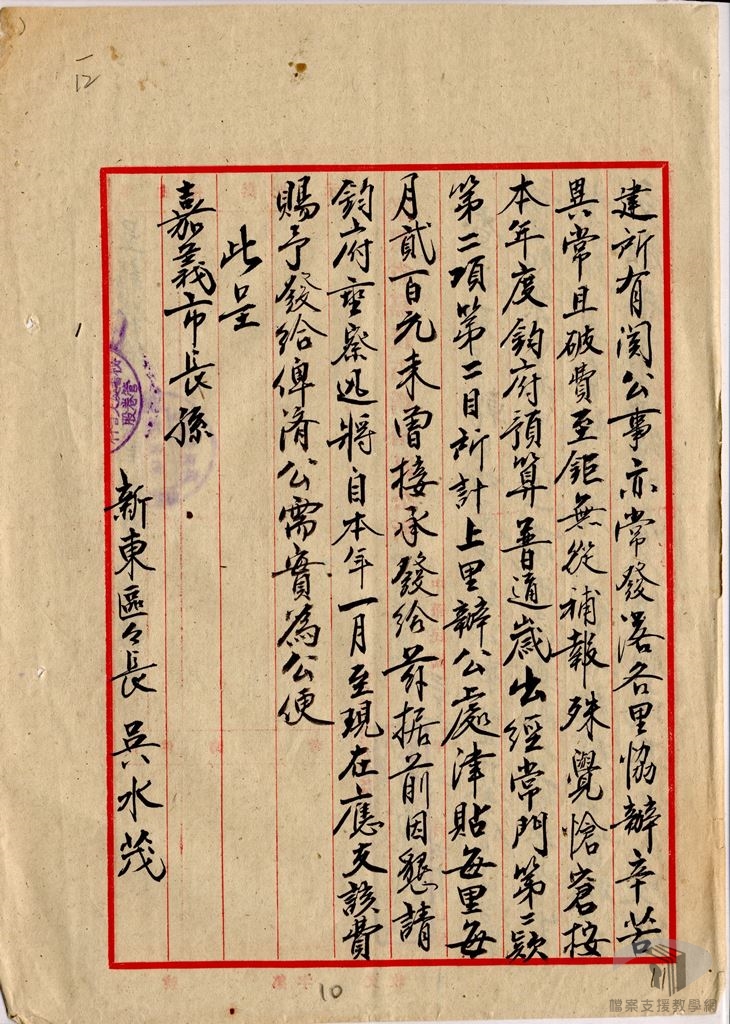 建所有關公事亦常發落各里協辦辛苦
異常且破費至鉅無從補報殊覺愴窘按
本年度鈞府預算普通歲出經常門第二款
第二項第二目所計上里辦公處津貼每里每
月貳百元未曾接承發給茲据前因懇請
鈞府垂察迅將自本年一月至現在應支該費
賜予發給俾濟公需實為公便
此呈
嘉義市長孫
新東區々長 吳水茂
12
10
檔案支援教學網